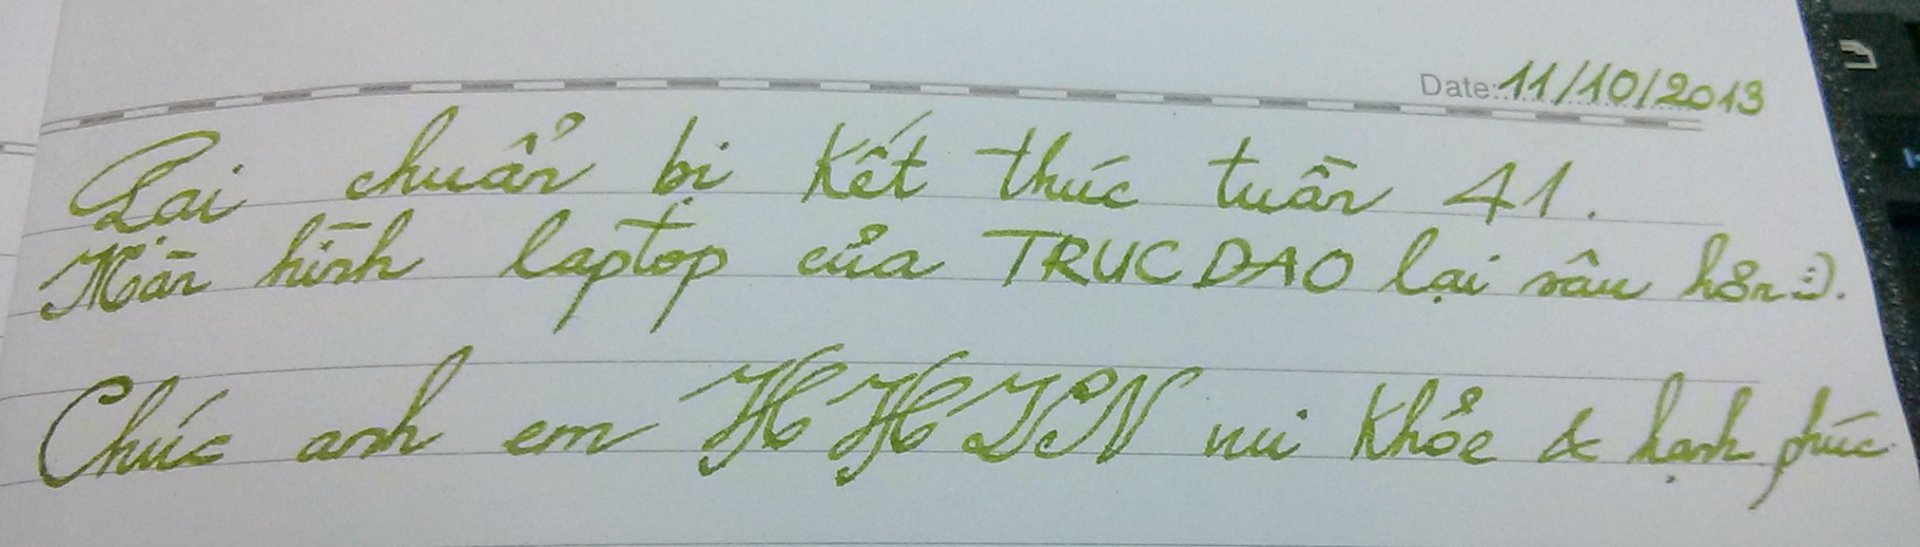 Date: 11/10/2013
Lại chuẩn bị kết thúc tuần 41.
Màn hình laptop của TRUCDAO lại sâu hơn :).
Chúc anh em vui khỏe & hạnh phúc